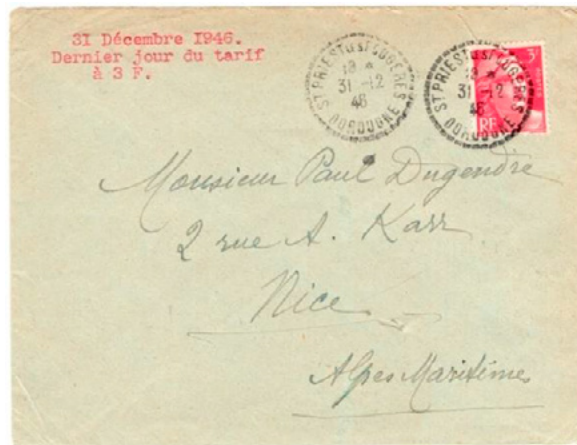 31 Décembre 1946.
Dernier jour du tarif
à 3 F.
ST PRIEST
18 *
31 -12
46
DORDOGNE
ST PRIEST
18 *
31 -12
46
DORDOGNE
3
RF
Monsieur Paul Dugendre
2 rue A. Karr
Nice
Alpes Maritimes